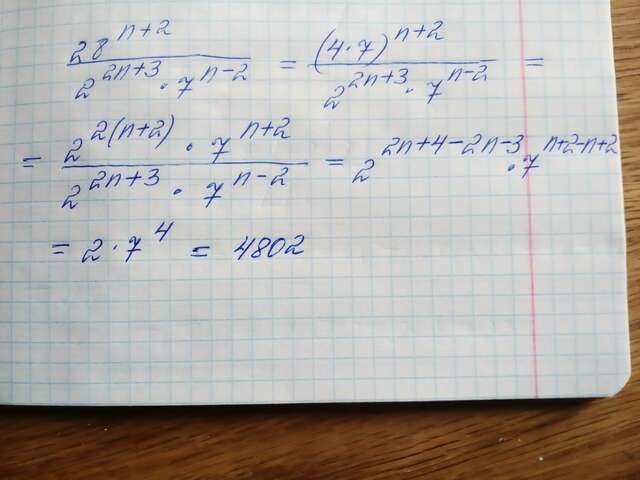 28^(n+2) / (2^(2n+3) · 7^(n-2)) = (4·7)^(n+2) / (2^(2n+3) · 7^(n-2)) =
= 2^(2(n+2)) · 7^(n+2) / (2^(2n+3) · 7^(n-2)) = 2^(2n+4-2n-3) · 7^(n+2-n+2)
= 2·7^4 = 4802